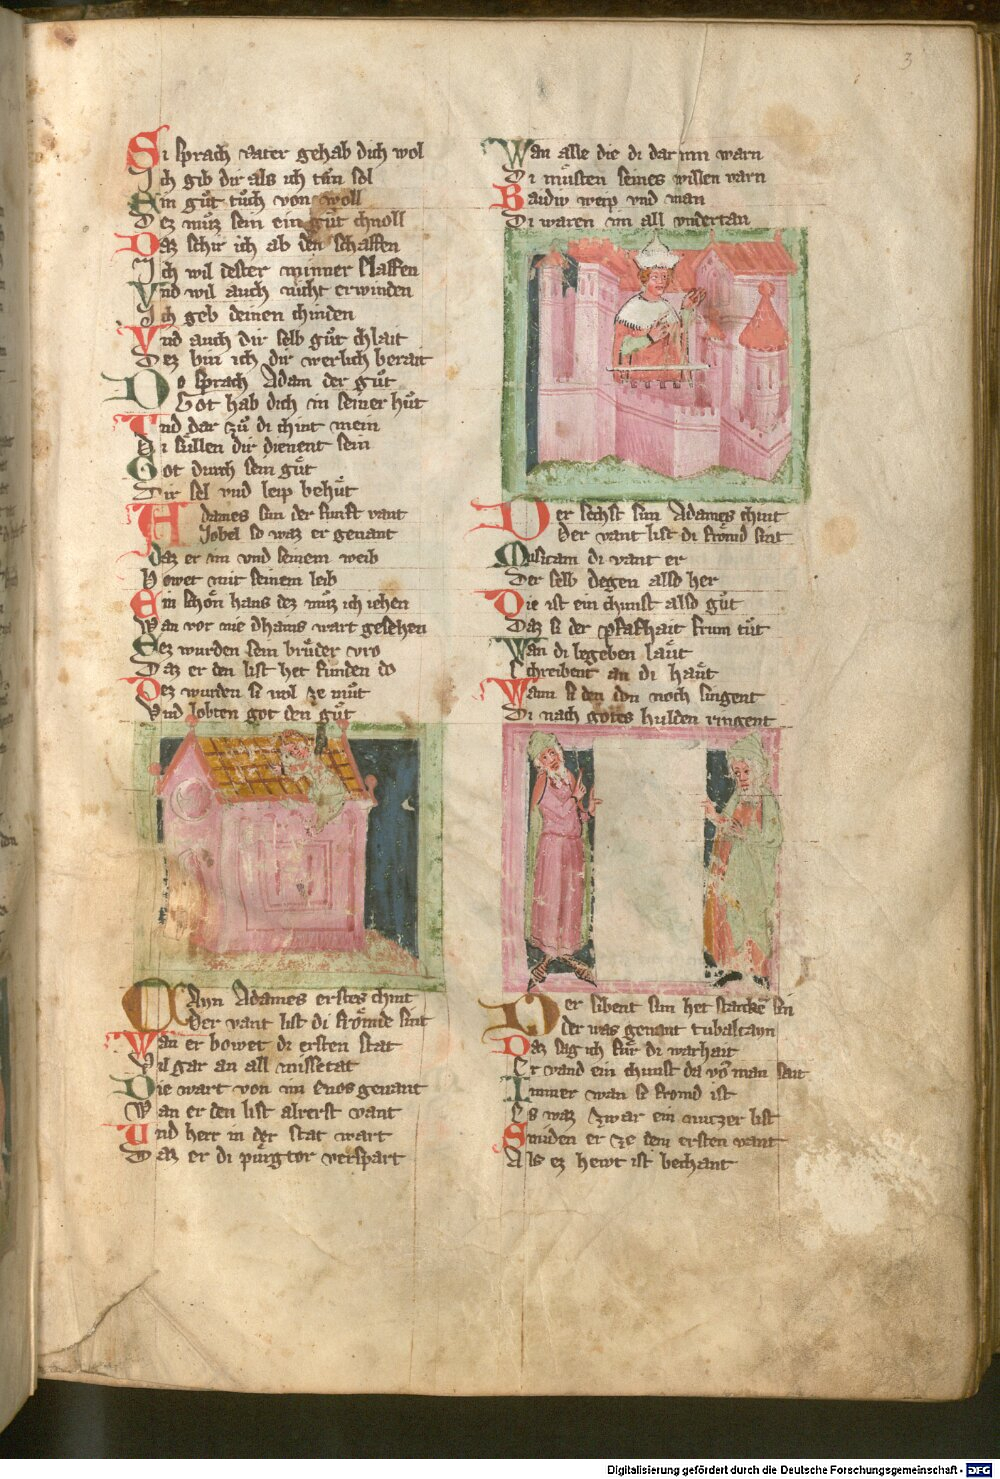 3
Si sprach vater gehab dich wol
Ich gib dir als ich tan sol
Ein guͦt tuͦch von woll
Dez muͦz sein ein guͦt chnoll
Daz schir ich ab den schaffen
Ich wil dester minner slaffen
Vnd wil auch nicht erwinden
Ich geb deinen chinden
Vnd auch dir selb guͦt chlait
Dez bin ich dir werlich berait
Do sprach Adam der guͦt
Got hab dich in seiner huͦt
Vnd dar zuͦ di chint mein
Di suͤllen dir dienent sein
Got durch sein guͤt
Dir sel vnd leip behuͤt
Adames sun der funft vant
Jobel so waz er genant
Daz er im vnd seinem weib
Bowet mit seinem leib
Ein schoͤn haus dez muͦz ich iehen
Wan vor nie dhains wart gesehen
Dez wurden sein bruͤder vro
Daz er den list het funden do
Dez wurden si wol ze muͦt
Vnd lobten got den guͦt
Cayn Adames erstes chint
Der vant list di froͤmde sint
Wan er bowet di ersten stat
Vil gar an all missetat
Die wart von im Enos genant
Wan er den list alrerst vant
Vnd herr in der stat wart
Daz er di puͤrgtor verspart
Wan alle die di dar inn warn
Di muͤsten seines willen varn
Baidiv weip vnd man
Di waren im all vndertan
Der sechst sun Adames chint
Der vant list di froͤmd sint
Musicam di vant er
Der selb degen also her
Die ist ein chunst also guͦt
Daz si der pfafhait frum tuͦt
Wan di begeben laͤut
Schreibent an di haͤut
Wann si den don noch singent
Di nach gotes hulden ringent
Der sibent sun het starken sin
der was genant tubalcayn
Daz sag ich fuͤr di warhait
Er vand ein chunst da võ man sait
Immer wan si fromd ist
Es waz zwar ein nutzer list
Smiden er ze dem ersten vant
Als ez hewt ist bechant
Digitalisierung gefördert durch die Deutsche Forschungsgemeinschaft - DFG